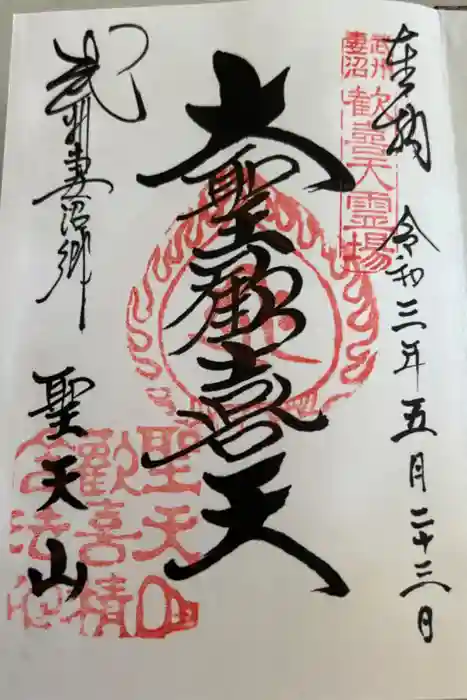 奉拝 令和三年五月二十三日
武州
妻沼
歓喜天霊場
大聖歓喜天
武州妻沼郷 聖天山
聖天山
歓喜